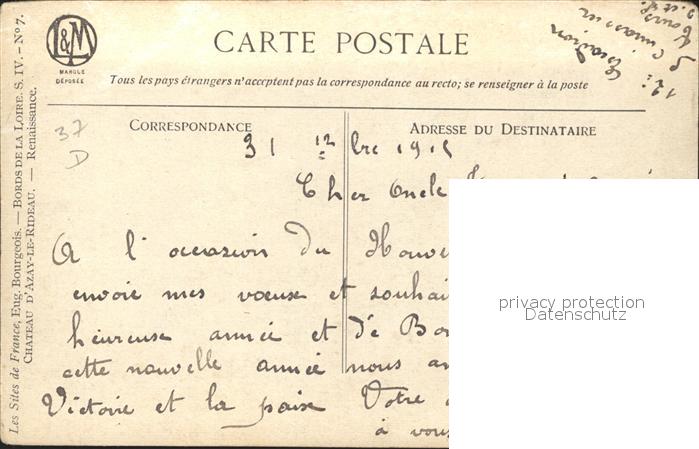 L&M
MARQUE
DÉPOSÉE
CARTE POSTALE
Tous les pays étrangers n'acceptent pas la correspondance au recto; se renseigner à la poste
CORRESPONDANCE
ADRESSE DU DESTINATAIRE
37
D
12e
Escadron
Tours
31 12bre 1915
Cher Oncle
A l'occasion du Nouve
envoie mes voeuse et souhai
heureuse année et de Bo
cette nouvelle année nous a
Victoire et la paix Votre
à vous
Les Sites de France, Eug. Bourgeois. — BORDS DE LA LOIRE. S. IV. — N° 7.
CHATEAU D'AZAY-LE-RIDEAU. — Renaissance.
privacy protection
Datenschutz